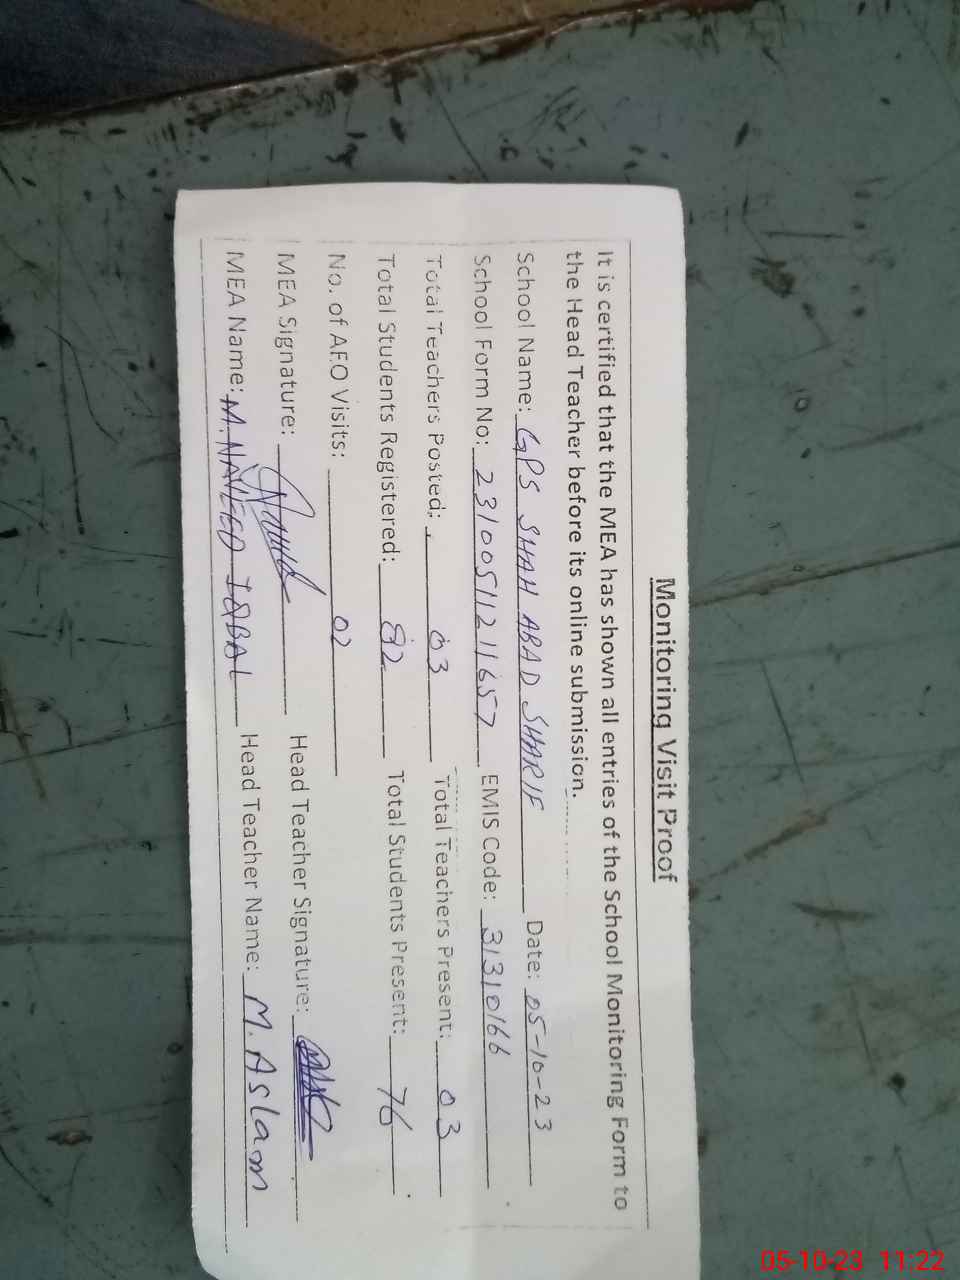 Monitoring Visit Proof
It is certified that the MEA has shown all entries of the School Monitoring Form to
the Head Teacher before its online submission.
School Name: GPS SHAH ABAD SHARIF Date: 05-10-23
School Form No: 2310051121657 EMIS Code: 31310166
Total Teachers Posted: 03 Total Teachers Present: 03
Total Students Registered: 82 Total Students Present: 76
No. of AEO Visits: 02
MEA Signature: Head Teacher Signature:
MEA Name: M. NAVEED IQBAL Head Teacher Name: M. Aslam
05-10-23 11:22